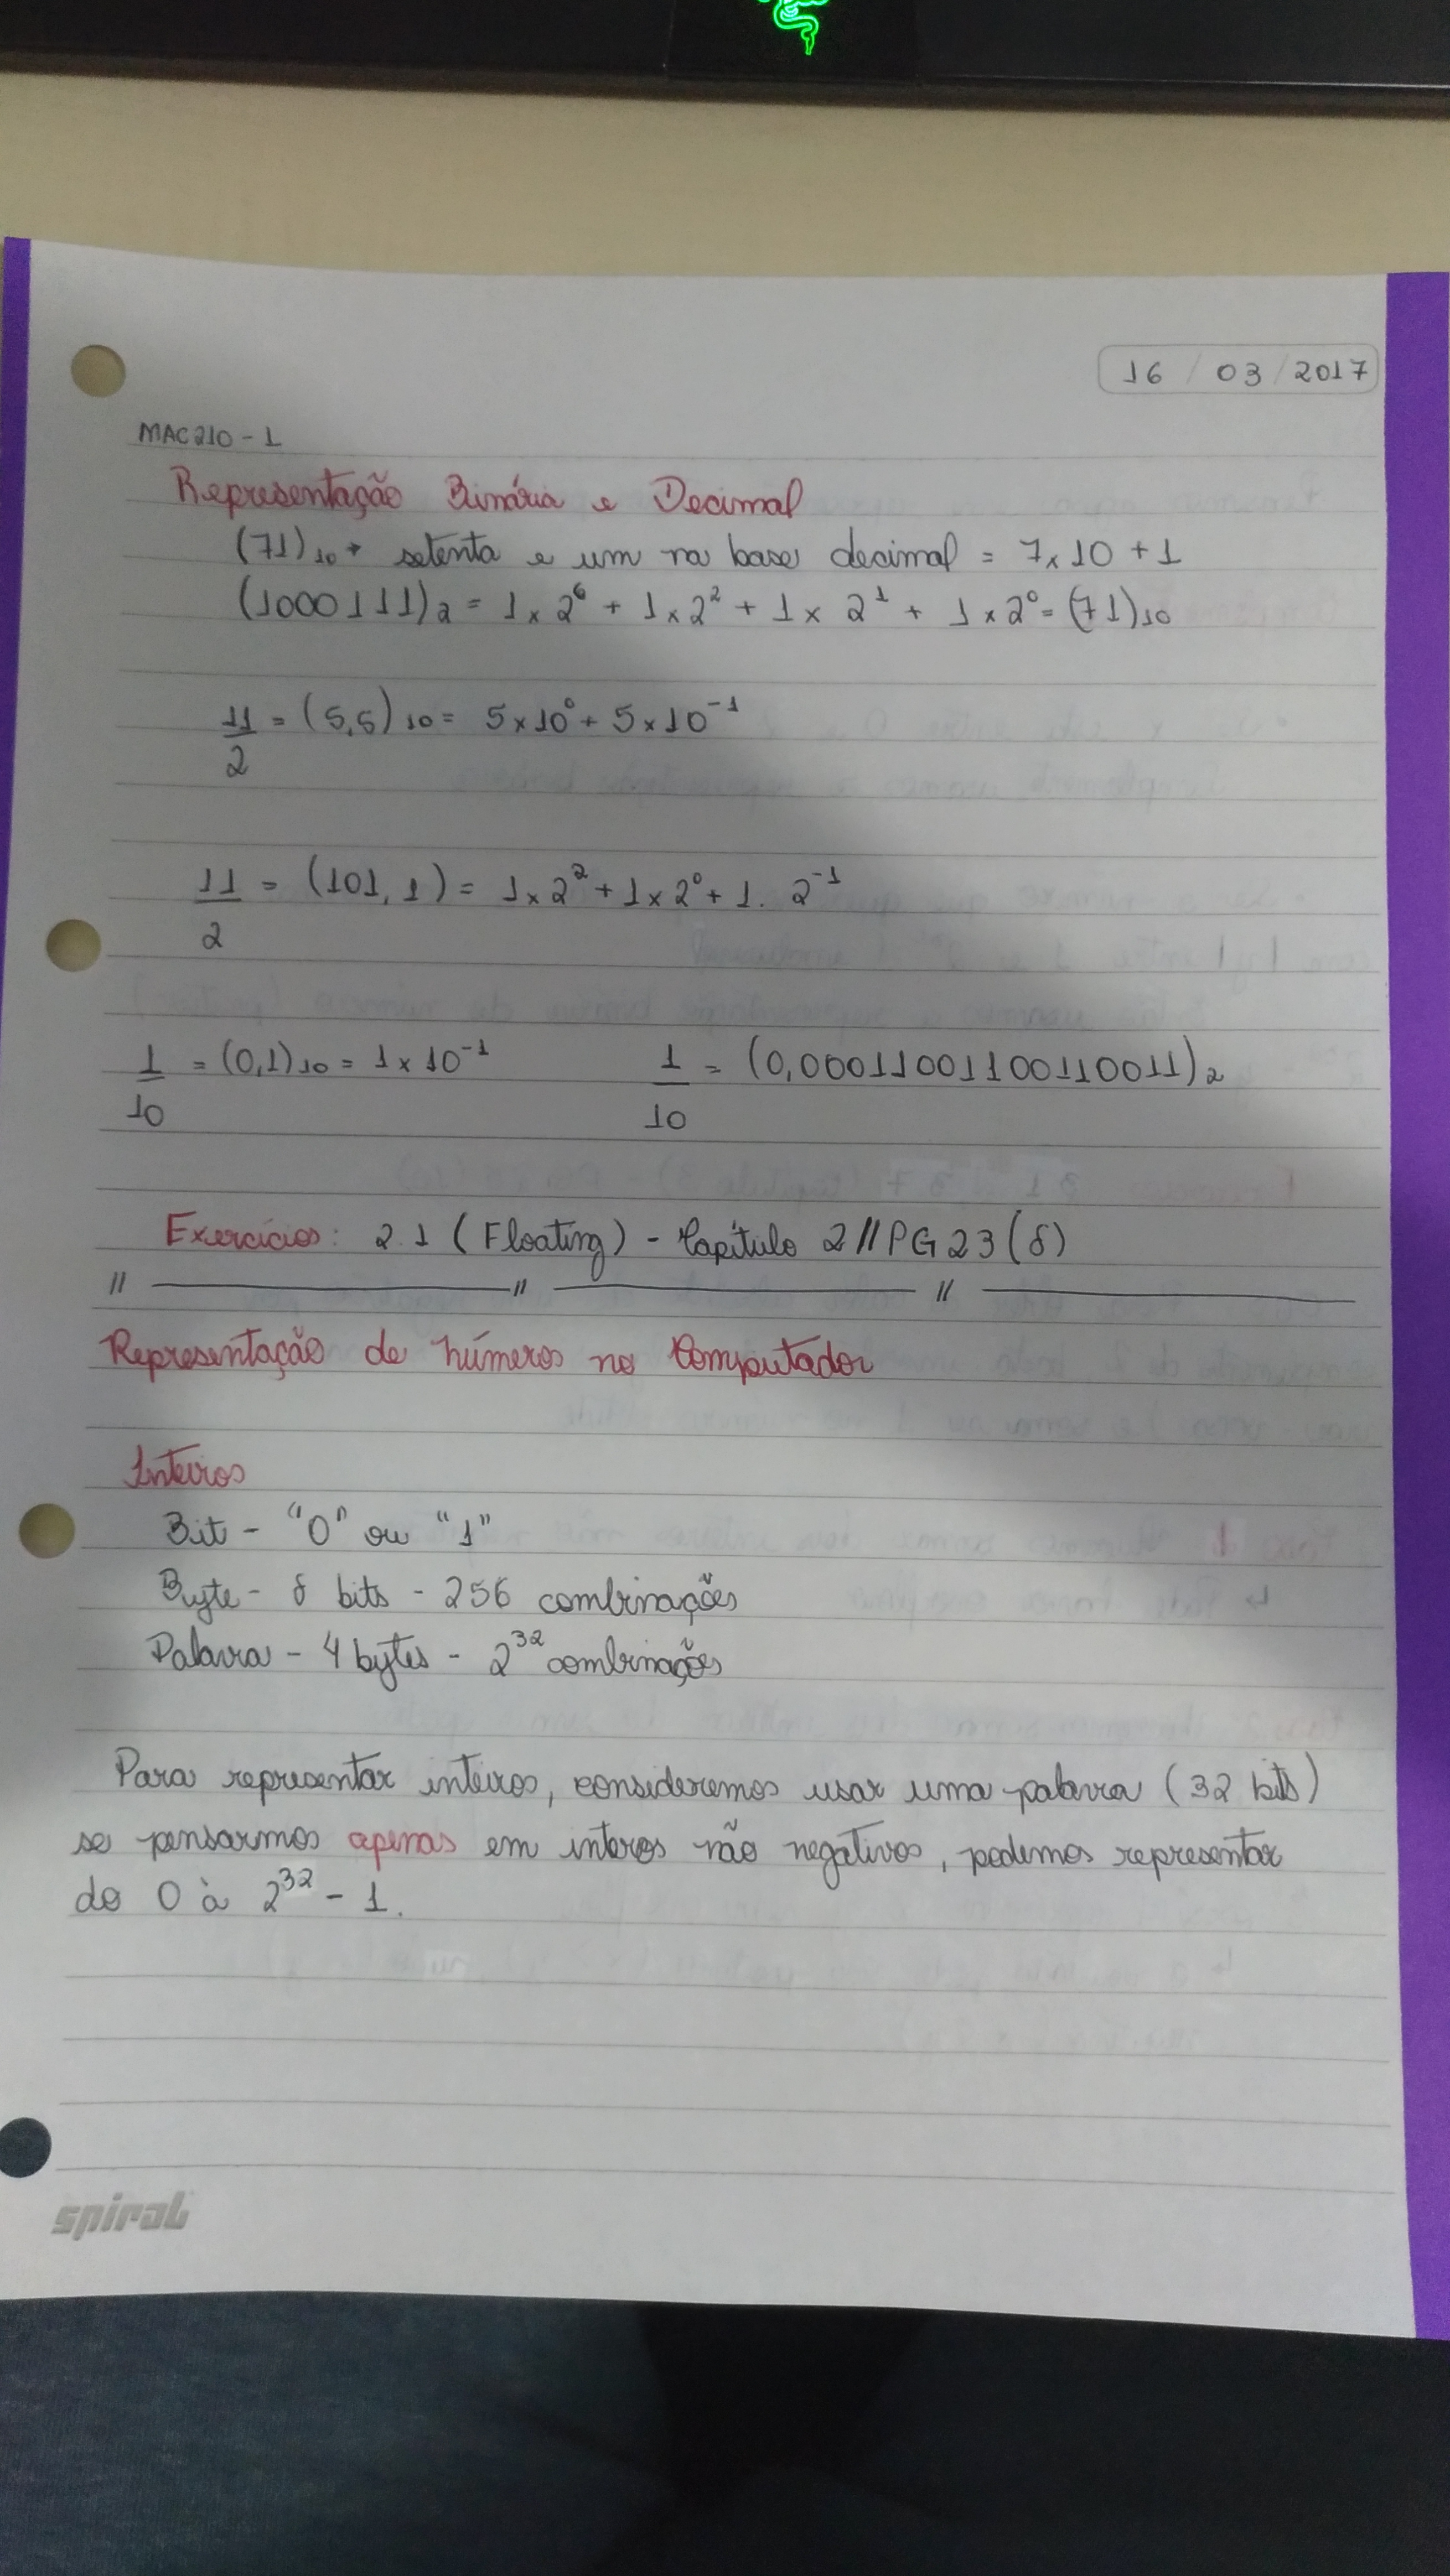 16 / 03 / 2017
MAC210 - 1
Representação Binária e Decimal
(71)₁₀ → setenta e um na base decimal = 7 x 10 + 1
(1000111)₂ = 1 x 2⁶ + 1 x 2² + 1 x 2¹ + 1 x 2⁰ = (71)₁₀
11/2 = (5,5)₁₀ = 5 x 10⁰ + 5 x 10⁻¹
11/2 = (101,1) = 1 x 2² + 1 x 2⁰ + 1 . 2⁻¹
1/10 = (0,1)₁₀ = 1 x 10⁻¹ 1/10 = (0,00011001100110011)₂
Exercícios: 2.1 (Floating) - Capítulo 2 // PG 23 (8)
Representação de números no Computador
Inteiros
Bit - "0" ou "1"
Byte - 8 bits - 256 combinações
Palavra - 4 bytes - 2³² combinações
Para representar inteiros, consideremos usar uma palavra (32 bits)
se pensarmos apenas em interos não negativos, podemos representar
do 0 à 2³² - 1.
spiral